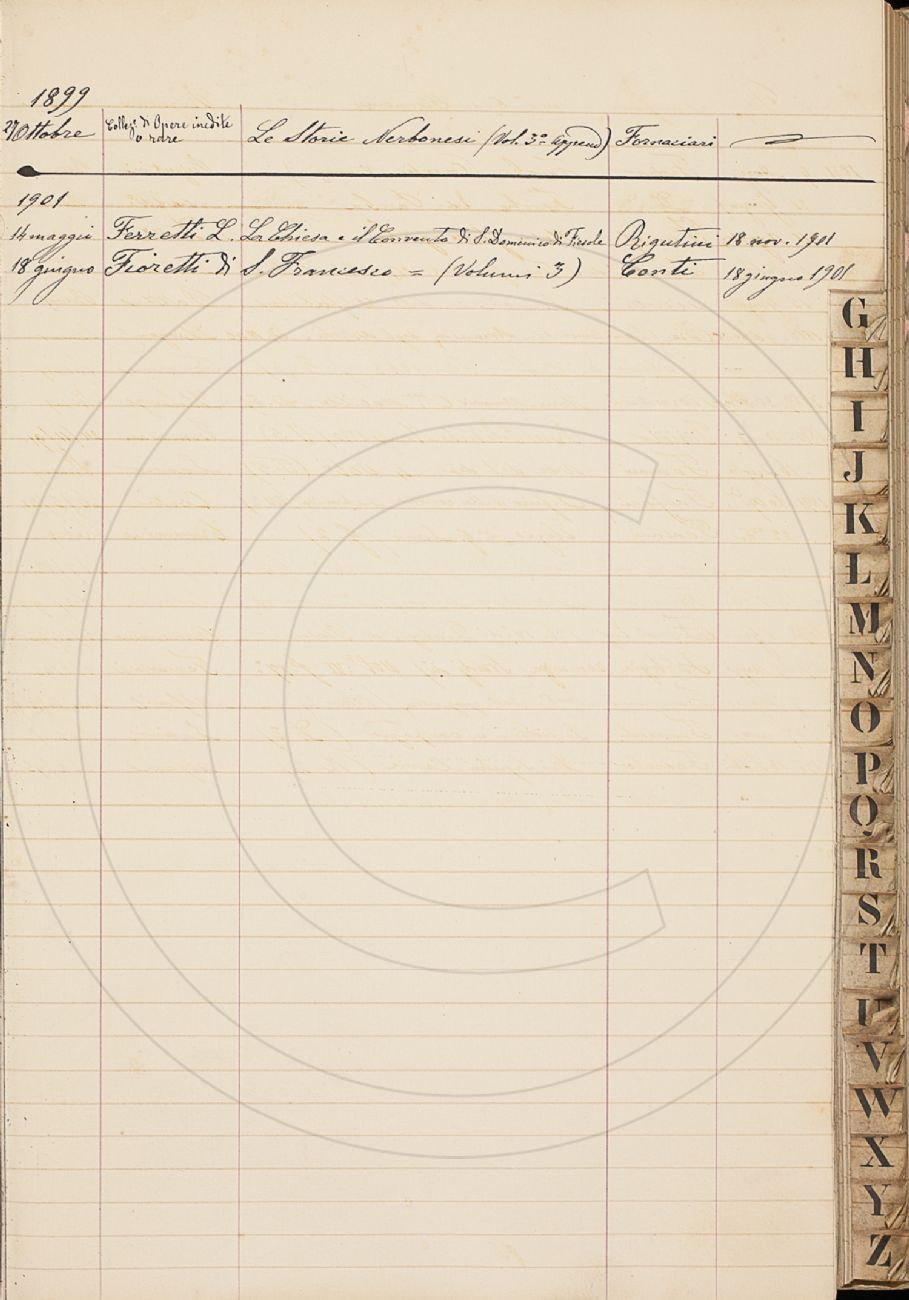 1899
27 Ottobre Collez. di Opere inedite o rare Le Storie Nerbonesi (Vol. 3º Append) Fornaciari
1901
14 maggio Ferretti L. La Chiesa e il Convento di S. Domenico di Fiesole Rigutini 18 nov. 1901
18 giugno Fioretti di S. Francesco = (Volumi 3) Conti 18 giugno 1901
G
H
I
J
K
L
M
N
O
P
Q
R
S
T
U
V
W
X
Y
Z
C